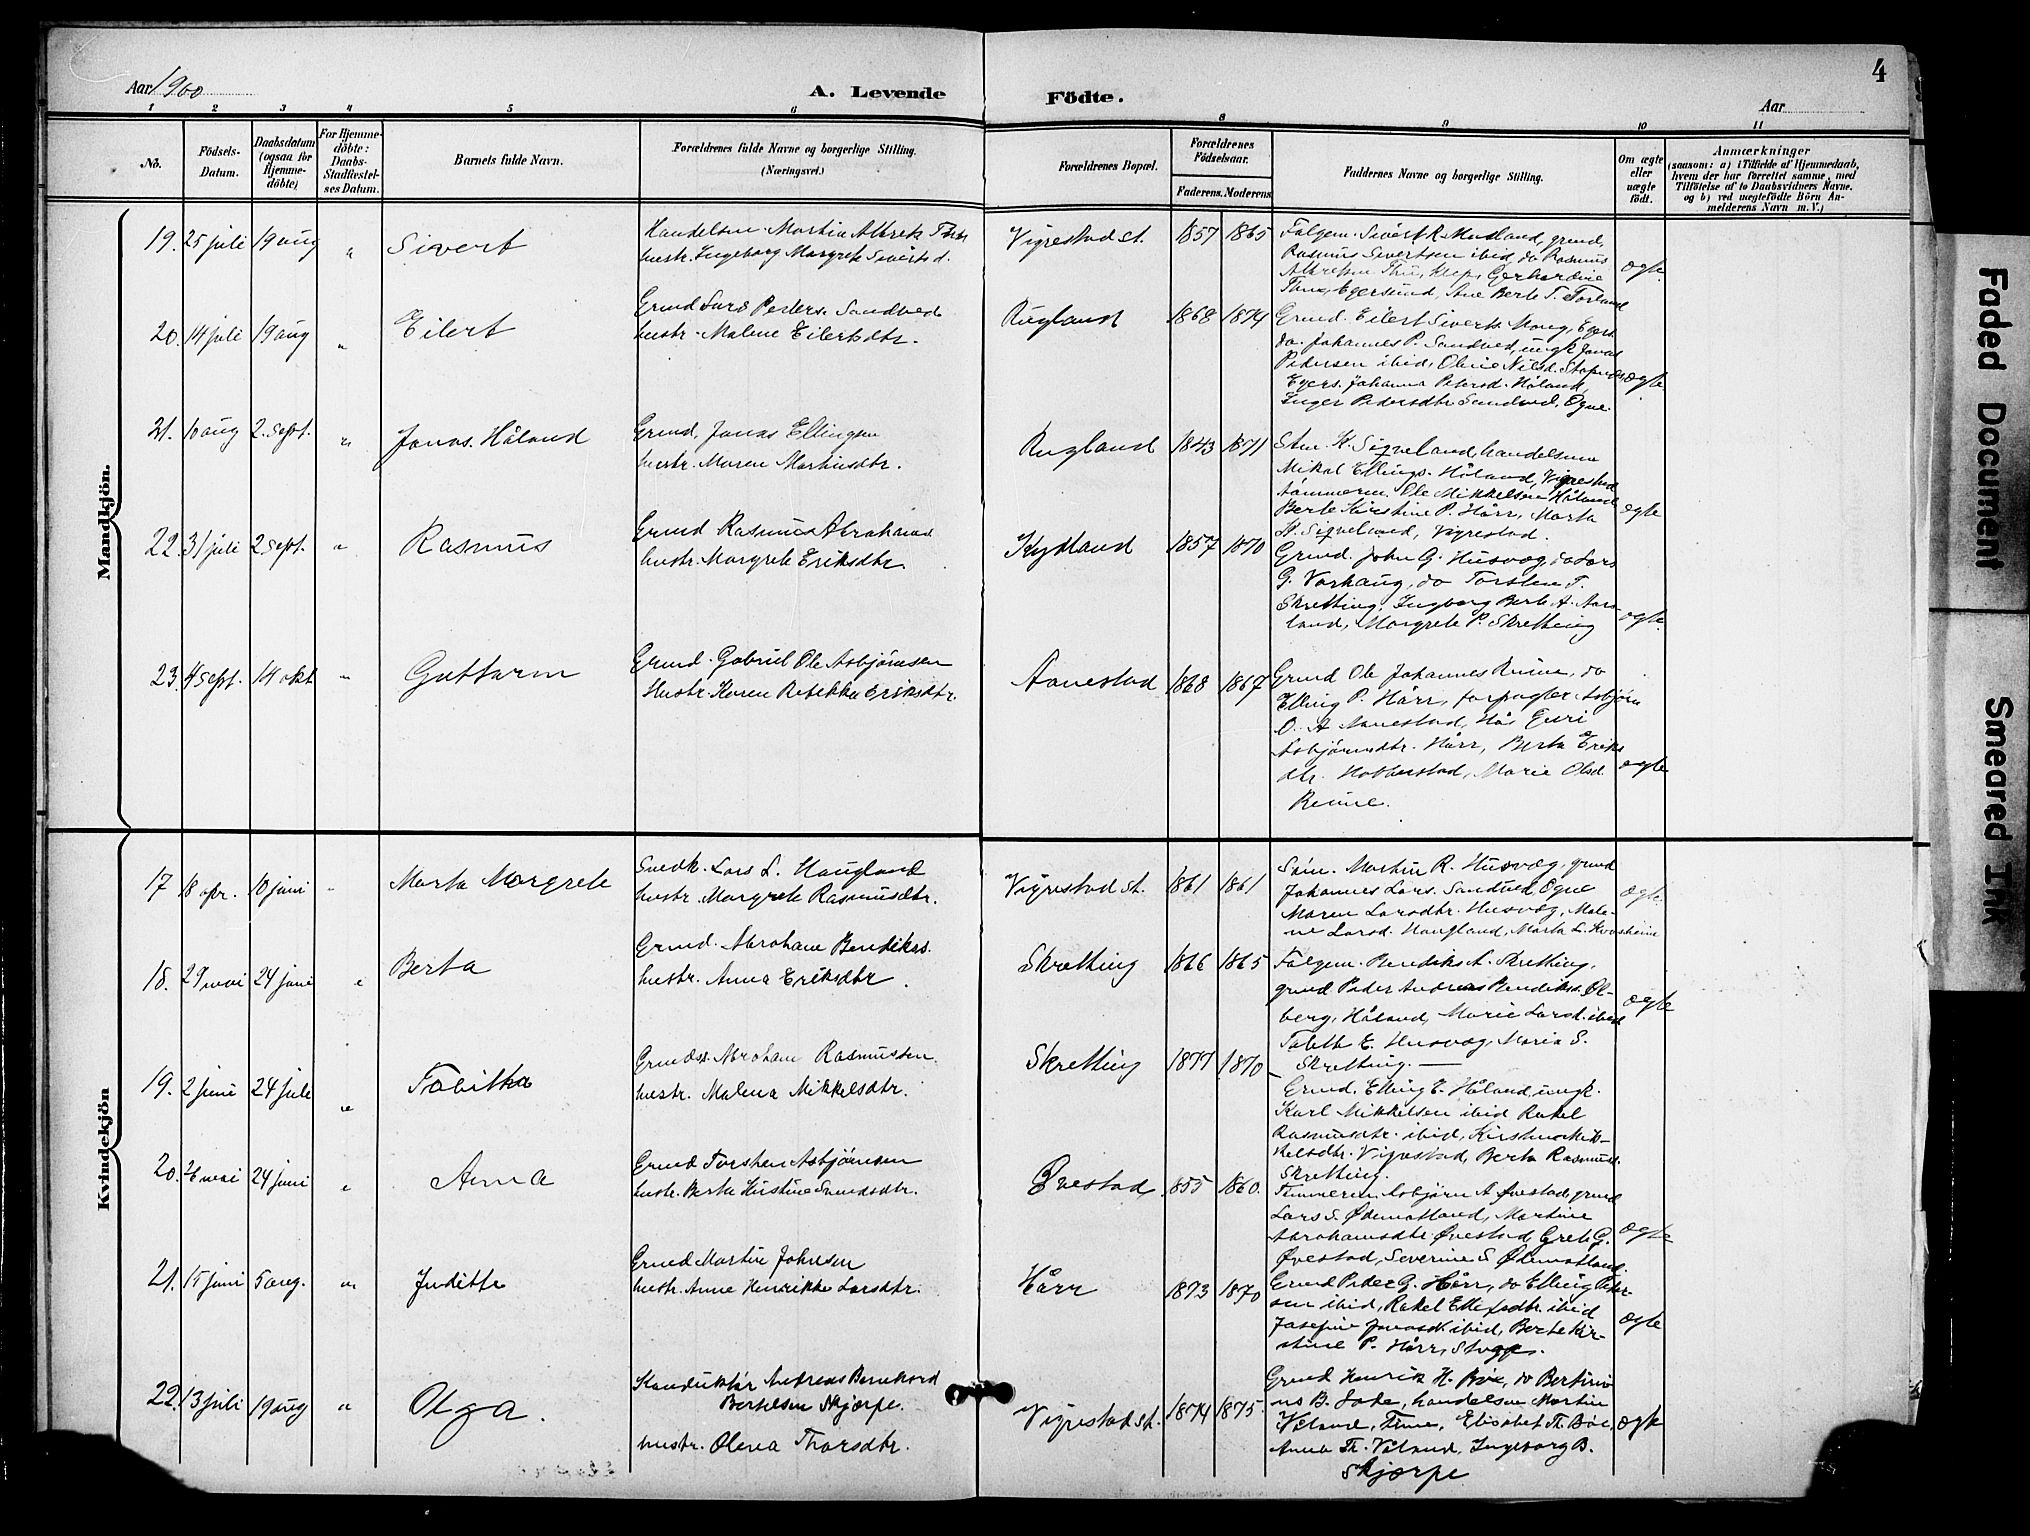 4
Aar 1900
A. Levende
Födte.
Aar
1 2 3 4 5 6 8 9 10 11
No.
Födsels-
Datum.
Daabsdatum
(ogsaa for
Hjemme-
döbte)
For Hjemme-
döbte:
Daabs-
Stadfæstel-
ses Datum.
Barnets fulde Navn.
Forældrenes fulde Navne og borgerlige Stilling.
(Næringsvei.)
Forældrenes Bopæl.
Forældrenes
Födselsaar.
Faderens. Moderens
Faddernes Navne og borgerlige Stilling.
Om ægte
eller
uægte
födt.
Anmærkninger
(saasom: a) i Tilfælde af Hjemmedaab,
hvem der har forrettet samme, med
Tilföielse af to Daabsvidners Navne.
og b) ved uægtefödte Börn An-
melderens Navn m. V.)
Mandkjön.
19. 25 juli 19 aug " Sivert
Handelsm. Martin Alfrek
hustr. Ingeborg Margrete Sivertsd.
Vigrestad st. 1857 1865
Følgem. Sivert R. Mudland, grmd.
Rasmus Sivertsen ibid, do Rasmus
Thu, Klep, Gerhardine
Thu, Egersund, Ane Berte T. Torland
ægte
20. 14 juli 19 aug " Eilert
Grmd Lars Peders. Sandved
hustr. Malene Eilertsdtr.
Rugland 1868 1874
Grmd. Eilert Siverts. Mong, Egers
do. Johannes P. Sandved, ungk. Jonas
Pedersen ibid, Olivie Nilsd. Stapnes,
Egers. Johanna Petersd. Håland,
Inger Pedersdtr Sandved, Ogne.
ægte
21. 10 aug 2. sept. " Jonas Håland
Grmd, Jonas Ellingsen
hustr. Maren Martinsdtr.
Rugland 1843 1871
K. Sigveland, handelsm
Mikal Ellings. Håland, Vigrestad
tømmerm. Ole Mikkelsen Håland
Berte Kirstine P. Hårr, Marta
St. Sigveland, Vigrestad.
ægte
22. 31 juli 2 sept. " Rasmus
Grmd Rasmus Abrahams
hustr. Margrete Eriksdtr.
Kydland 1857 1870
Grmd. John G. Husvæg, do Lars
G. Varhaug, do Torsten T.
Skretting, Ingborg Berte A. Aars-
land, Margrete P. Skretting
ægte
23. 4 sept. 14 okt " Guttorm
Grmd. Gabriel Ole Asbjørnsen
Hustr. Karen Rebekka Eriksdtr.
Aanestad 1868 1867
Grmd Ole Johannes Reime, do
Elling P. Hårr, forpagter Asbjørn
O. A Aanestad, Hå, Guri
Asbjørnsdtr. Hårr, Berta Eriks
dtr. Hobberstad, Marie Olsd
Reime.
ægte
Kvindekjön
17 18 apr. 10 juni " Marta Margrete
Snedk. Lars L. Haugland
hustr. Margrete Rasmusdtr.
Vigrestad st. 1861 1861
Martin R. Husvæg, grmd
Johannes Lars. Sandved, Ogne
Maren Larsdtr. Husvæg, Male-
ne Larsd. Haugland, Marta L. Kvasheim
ægte
18. 29 mai 24 juni " Berta
Grmd. Abraham Bendikss.
hustr. Anna Eriksdtr
Skretting 1866 1865
Følgem. Bendiks A. Skretting,
grmd Peder Andreas Bendikss. Øl-
berg, Håland, Marie Larsd. ibid
Tabith E. Husvæg, Maria S.
Skretting.
ægte
19. 2 juni 24 juli " Tabitha
Grmdss. Abraham Rasmussen
hustr. Malena Mikkelsdtr.
Skretting 1877 1870
Grmd. Elling E. Håland, ungk.
Karl Mikkelsen ibid Rakel
Rasmusdtr. ibid, Kirstine Mik-
kelsdtr. Vigrestad, Berta Rasmusd.
Skretting.
20. mai 24 juni " Anna
Grmd Torsten Asbjørnsen
hustr. Berta Kirstine Svendsdtr.
Øvestad. 1855 1860.
Tømmerm Asbjørn A Øvestad, grmd
Lars S. Ødemotland, Martine
Abrahamsdtr. Øvestad, Grete G.
Øvestad, Severine S. Ødemotland.
ægte
21. 15 juni 5 aug. " Judithe
Grmd Martin Johnsen
hustr. Anne Henrikke Larsdtr.
Hårr 1873 1870
Grmd Peder G. Hårr, do Elling Peder-
sen ibid, Rakel Ellefsdtr. ibid
Josefine Jonasd. ibid, Berte Kir-
stine P. Hårr,
ægte
22. 13 juli 19 aug " Olga.
Konduktør Andreas
Bertelsen Skjærpe.
hustr. Olena Thorsdtr.
Vigrestad st. 1874 1875.
Grmd Henrik H. Bøe, do Bertini-
us B. Lode, handelsm Martin
Våland, Time, Elisabet Th. Bøe,
Anna Th. Våland, Ingeborg B.
Skjærpe
ægte
Faded Document
Smeared Ink